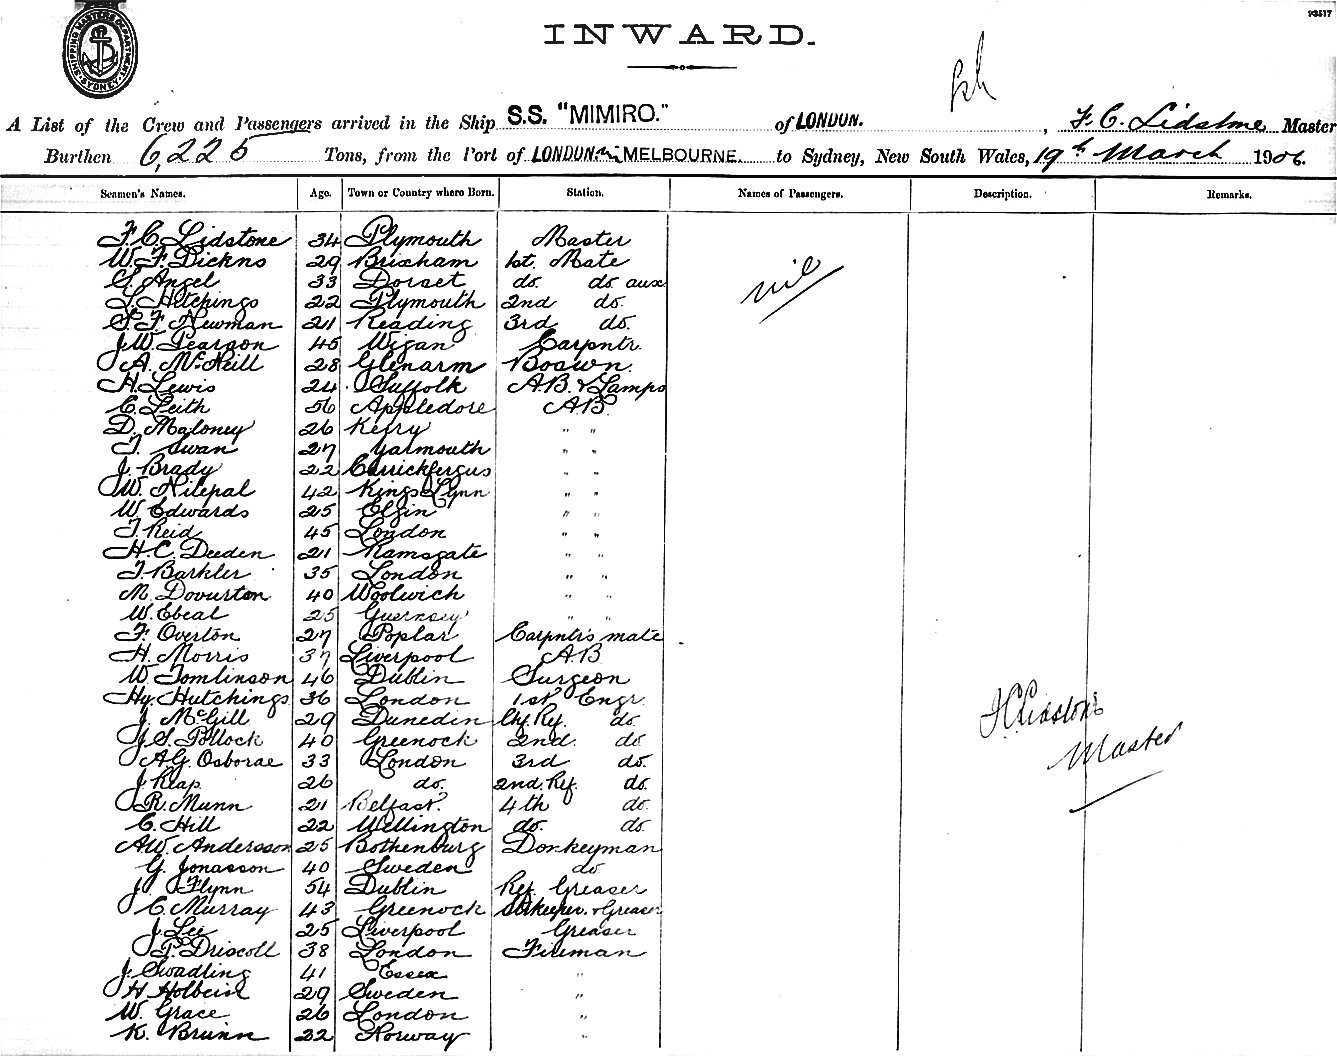 93517
SHIPPING MASTERS DEPARTMENT SYDNEY
INWARD.
A List of the Crew and Passengers arrived in the Ship S.S. "MIMIRO." of LONDON. , F. C. Lidstone Master
Burthen 6,225 Tons, from the Port of LONDON MELBOURNE. to Sydney, New South Wales, 19th March 1906.
Seamen's Names. Age. Town or Country where Born. Station. Names of Passengers. Description. Remarks.
F. C. Lidstone 34 Plymouth Master
W. F. Dickns 29 Brixham 1st. Mate
G. Angel 33 Dorset do. do aux
S. Hitchings 22 Plymouth 2nd do. nil
S. F. Newman 21 Reading 3rd do.
J. W. Pearson 45 Wigan Carpntr.
A. McNeill 28 Glenarm Boswn.
H. Lewis 24 Suffolk A.B. & Lamps
C. Leith 56 Appledore A.B.
D. Maloney 26 Kerry " "
T. Swan 27 Yarmouth " "
J. Brady 22 Carrickfergus " "
W. 42 Kings Lynn " "
W. Edwards 25 Elgin " "
T. Reid 45 London " "
H. C. Deeden 21 Ramsgate " "
T. Barkler 35 London " "
M. Dovurton 40 Woolwich " "
W. Ebeal 25 Guernsey " "
F. Overton 27 Poplar Carpntr's mate
H. Morris 37 Liverpool A.B
W. Tomlinson 46 Dublin Surgeon
Hy. Hutchings 36 London 1st Engr.
J. McGill 29 Dunedin Chf. Ref. do. F C Lidstone
J. S. Pollock 40 Greenock 2nd. do Master
A. G. Osborne 33 London 3rd do.
J. Reap 26 do. 2nd. Ref. do.
R. Munn 21 Belfast. 4th do.
C. Hill 22 Wellington do. do.
A. W. Andersson 25 Bothenburg Donkeyman
G. Jonasson 40 Sweden do
J. Flynn 54 Dublin Ref. Greaser
C. Murray 43 Greenock Storkeeper. & Greaser
J. Lee 25 Liverpool Greaser
P. Driscoll 38 London Fireman
J. Swadling 41 Essex "
H Holbein 29 Sweden "
W. Grace 26 London "
K. Brunn 22 Norway "